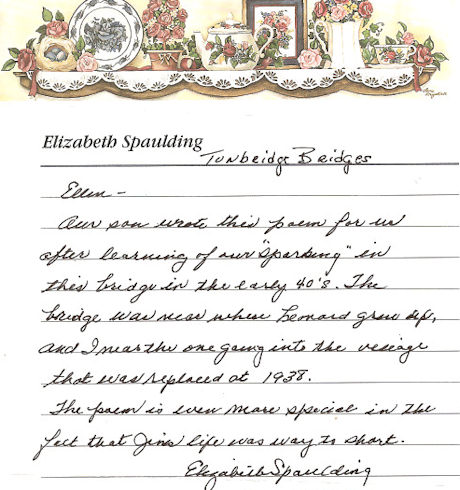 Elizabeth Spaulding
Tunbridge Bridges
Ellen -
Our son wrote this poem for us
after learning of our "Sparking" in
this bridge in the early 40's. The
bridge was near where Leonard grew up,
and I near the one going into the village
that was replaced at 1938.
The poem is even more special in the
fact that Jim's life was way to short.
Elizabeth Spaulding